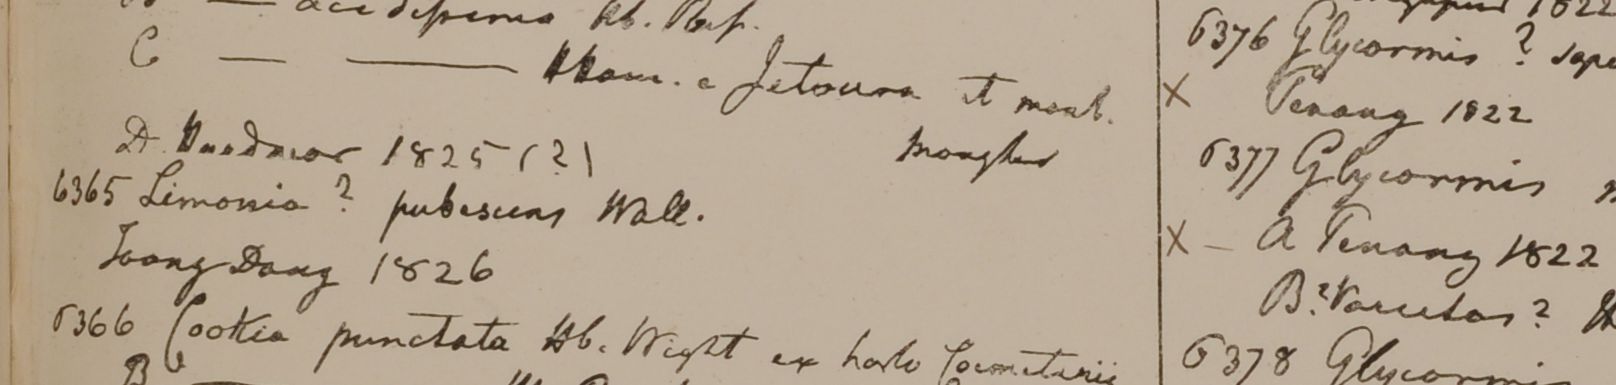 B — acidissima Hb. Roxb.
C — — Ham. e Jetoura et mont.
Mongher
D. Hurdwar 1825 (?)
6365 Limonia ? pubescens Wall.
Toong Dong 1826
6366 Cookia punctata Hb. Wight ex horto Coemeterii
B
1822
6376 Glycosmis ?
X Penang 1822
6377 Glycosmis
X — A Penang 1822
B? Varietas ?
6378 Glycosmis